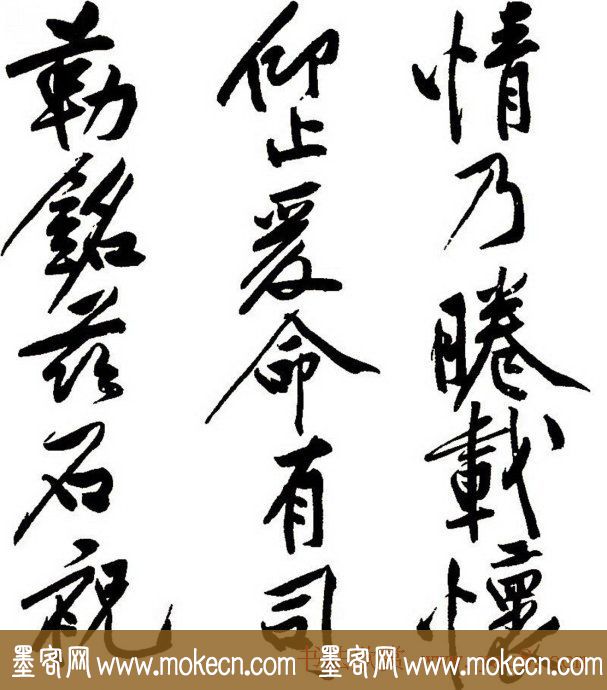 情乃睠載懷
仰止爰命有司
勒銘茲石祝
墨客网 www.mokecn.com 墨客网 www.mokecn.com